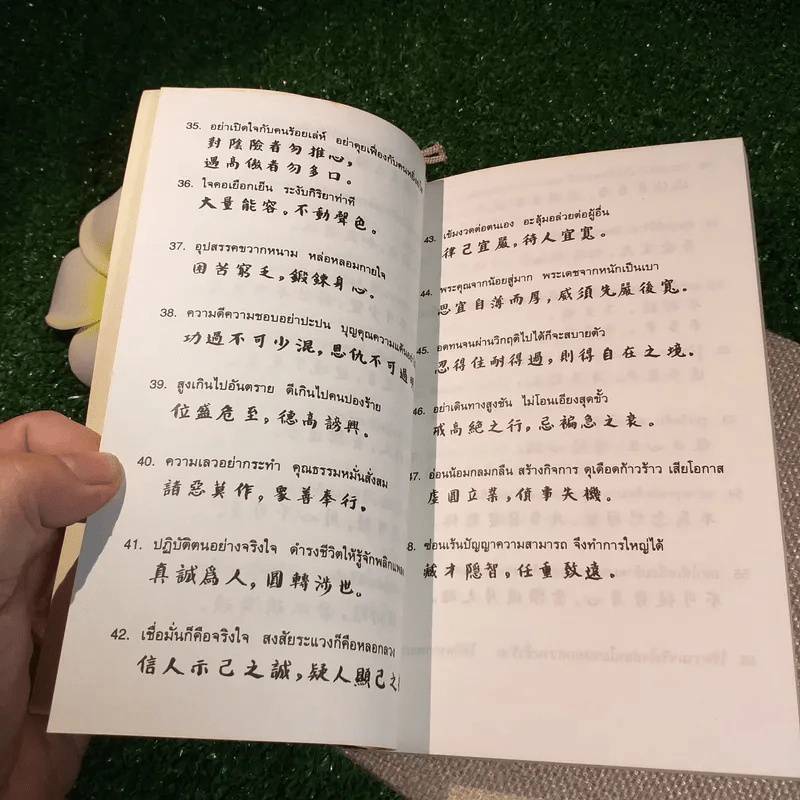 35. อย่าเปิดใจกับคนร้อยเล่ห์ อย่าคุยเฟื่องกับคน
對陰險者勿推心,
遇高傲者勿多口。
36. ใจคอเยือกเย็น ระงับกิริยาท่าที
大量能容。不動聲色。
37. อุปสรรคขวากหนาม หล่อหลอมกายใจ
困苦窮乏,鍛鍊身心。
38. ความดีความชอบอย่าปะปน บุญคุณความแค้น
功過不可少混,恩仇不可過
39. สูงเกินไปอันตราย ดีเกินไปคนปองร้าย
位盛危至,德高謗興。
40. ความเลวอย่ากระทำ คุณธรรมหมั่นสั่งสม
諸惡莫作,眾善奉行。
41. ปฏิบัติตนอย่างจริงใจ ดำรงชีวิตให้รู้จักพลิกแพลง
真誠爲人,圓轉涉世。
42. เชื่อมั่นก็คือจริงใจ สงสัยระแวงก็คือหลอกลวง
信人示己之誠,疑人顯己之
43. เข้มงวดต่อตนเอง อะลุ้มอล่วยต่อผู้อื่น
律己宜嚴,待人宜寬。
44. พระคุณจากน้อยสู่มาก พระเดชจากหนักเป็นเบา
恩宜自薄而厚,威須先嚴後寬。
45. อดทนจนผ่านวิกฤติไปได้ก็จะสบายตัว
忍得住耐得過,則得自在之境。
46. อย่าเดินทางสูงชัน ไม่โอนเอียงสุดขั้ว
戒高絕之行,忌褊急之衷。
47. อ่อนน้อมกลมกลืน สร้างกิจการ ดุเดือดก้าวร้าว เสียโอกาส
虛圓立業,僨事失機。
8. ซ่อนเร้นปัญญาความสามารถ จึงทำการใหญ่ได้
藏才隱智,任重致遠。